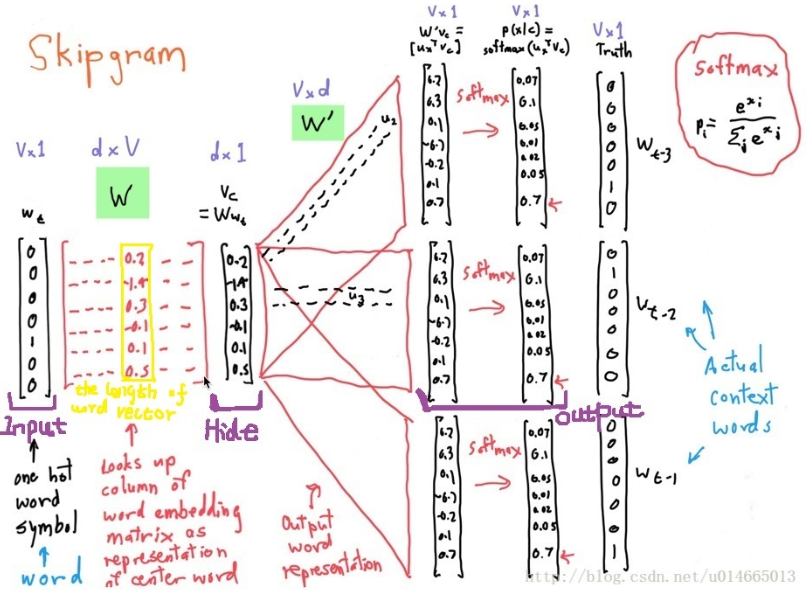 Skipgram
V×1
d×V
W
d×1
V×d
W'
V×1
W'v_c =
[u_x^T v_c]
V×1
p(x|c) =
softmax(u_x^T v_c)
V×1
Truth
softmax
p_i = e^{x_i} / Σ_j e^{x_j}
w_t
v_c
= Ww_t
0
0
0
0
1
0
0
0.2
-1.4
0.3
-0.1
0.1
0.5
0.2
-1.4
0.3
-0.1
0.1
0.5
u_2
u_3
6.2
6.3
0.1
-6.7
-0.2
0.1
0.7
softmax
0.07
0.1
0.05
0.01
0.02
0.05
0.7
0
0
0
0
0
1
0
W_t-3
6.2
6.3
0.1
-6.7
-0.2
0.1
0.7
softmax
0.07
0.1
0.05
0.01
0.02
0.05
0.7
0
1
0
0
0
0
0
W_t-2
6.2
6.3
0.1
-6.7
-0.2
0.1
0.7
softmax
0.07
0.1
0.05
0.01
0.02
0.05
0.7
0
0
0
0
0
0
1
W_t-1
the length of
word vector
Input
Hide
Output
Actual
context
words
one hot
word
symbol
word
Looks up
column of
word embedding
matrix as
representation
of center word
Output
word
representation
http://blog.csdn.net/u014665013